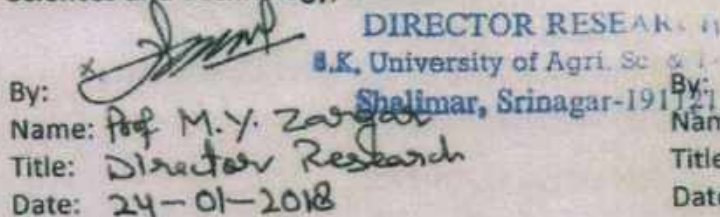 DIRECTOR RESEAR
S.K. University of Agri. Sc &
Shalimar, Srinagar-191121
By:
Name: Prof M.Y. Zargar
Title: Director Research
Date: 24-01-2018
By:
Nam
Title
Dat